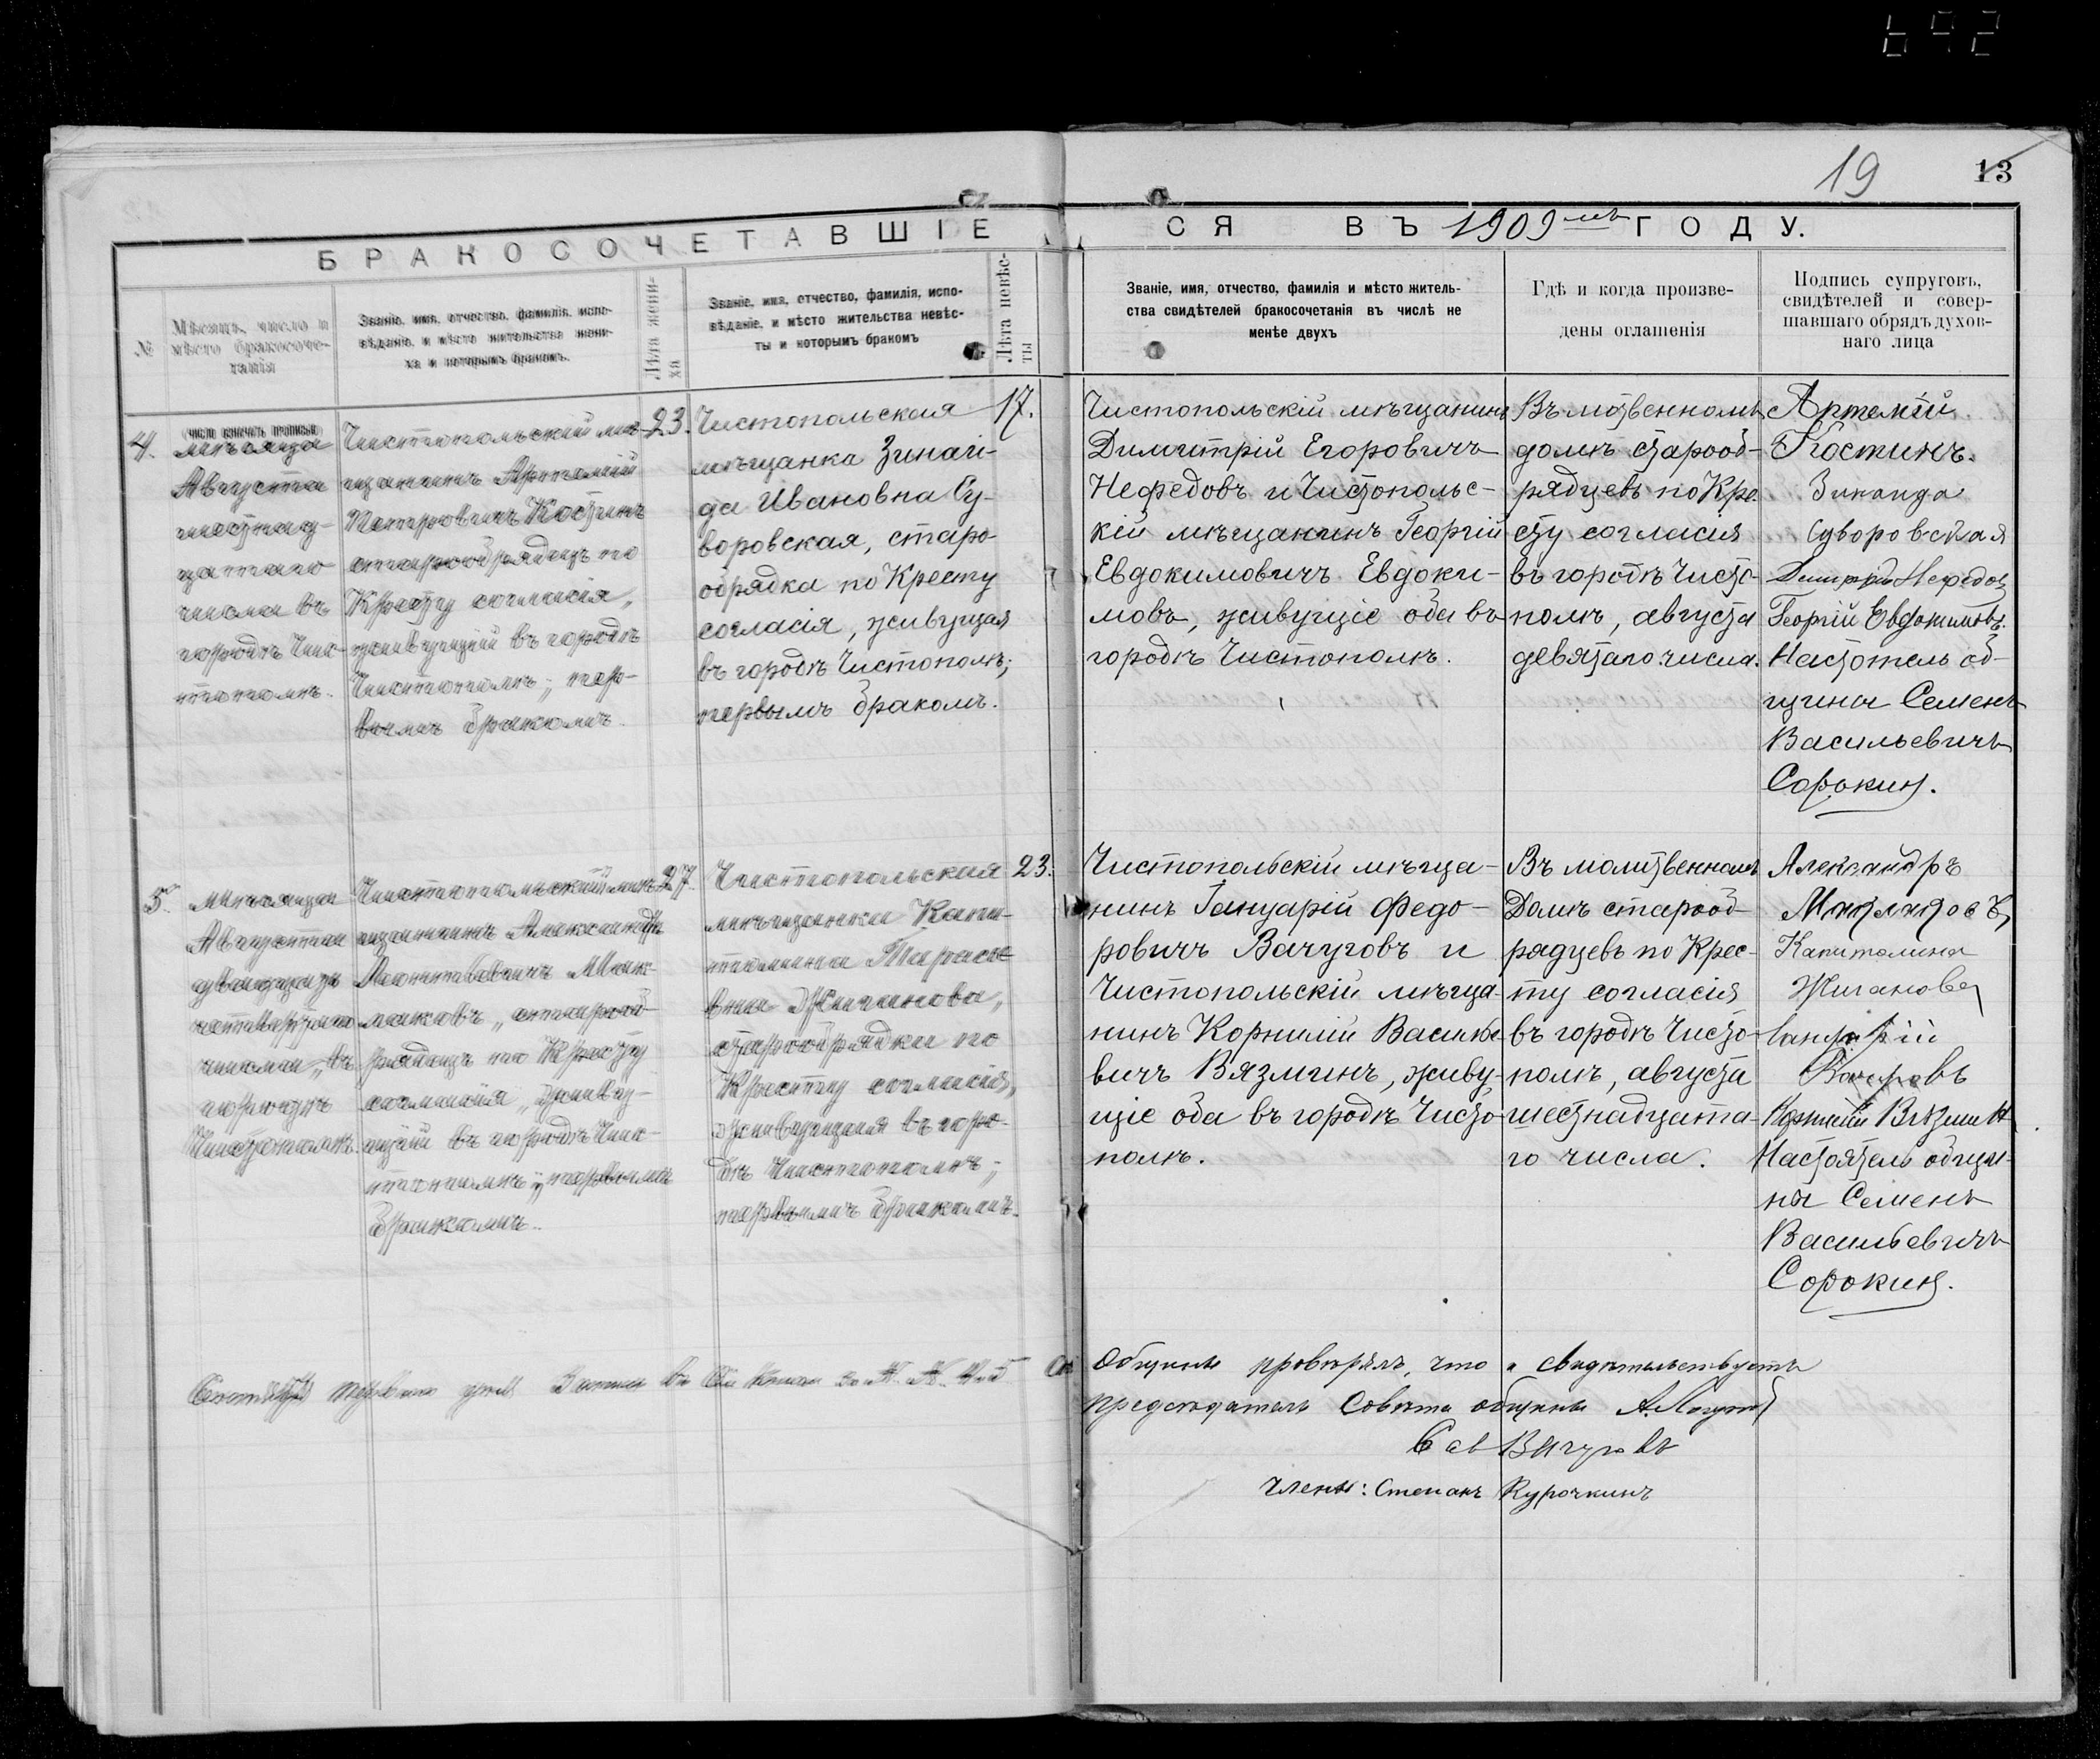 642
19
13
БРАКОСОЧЕТАВШІЕСЯ ВЪ 1909мъ ГОДУ.
№
Мѣсяцъ, число и
мѣсто бракосоче-
танія
число означать прописью
Званіе, имя, отчество, фамилія, испо-
вѣданіе, и мѣсто жительства жени-
ха и которымъ бракомъ.
Лѣта жени-
ха
Званіе, имя, отчество, фамилія, испо-
вѣданіе, и мѣсто жительства невѣс-
ты и которымъ бракомъ
Лѣта невѣс-
ты
Званіе, имя, отчество, фамилія и мѣсто житель-
ства свидѣтелей бракосочетанія въ числѣ не
менѣе двухъ
Гдѣ и когда произве-
дены оглашенія
Подпись супруговъ,
свидѣтелей и совер-
шавшаго обрядъ духов-
наго лица
4.
мѣсяца
Августа
шестнад-
цатаго
числа въ
городѣ Чис-
тополѣ.
Чистопольскій мѣ-
щанинъ Артемій
Петровичъ Костинъ
старообрядецъ по
Кресту согласія,
живущій въ городѣ
Чистополѣ; пер-
вымъ бракомъ.
23.
Чистопольская
мѣщанка Зинаи-
да Ивановна Су-
воровская, старо-
обрядка по Кресту
согласія, живущая
въ городѣ Чистополѣ;
первымъ бракомъ.
17.
Чистопольскій мѣщанинъ
Димитрій Егоровичъ
Нефедовъ и Чистопольс-
кій мѣщанинъ Георгій
Евдокимовичъ Евдоки-
мовъ, живущіе оба въ
городѣ Чистополѣ.
Въ мотвенномъ
домѣ старооб-
рядцевъ по Кре-
сту согласія
въ городѣ Чисто-
полѣ, августа
девятаго числа.
Артемій
Костинъ.
Зинаида
Суворовская
Димитрій Нефедов
Георгій Евдокимовъ.
Настотель об-
щины Семенъ
Васильевичъ
Сорокин.
5.
мѣсяца
Августа
двадцать
четвертаго
числа, въ
городѣ
Чистополѣ.
Чистопольскій мѣ-
щанинъ Александръ
Леонтьевичъ Мак-
лаковъ, старооб-
рядецъ по Кресту
согласія, живу-
щій въ городѣ Чис-
тополѣ; первымъ
бракомъ.
27.
Чистопольская
мѣщанка Капи-
толина Тарасье-
вна Жиганова,
старообрядка по
Кресту согласія,
живущая въ горо-
дѣ Чистополѣ;
первымъ бракомъ.
23.
Чистопольскій мѣща-
нинъ Іануарій Федо-
ровичъ Вачуговъ и
Чистопольскій мѣща-
нинъ Корнилій Василье-
вичъ Вязминъ, живу-
щіе оба въ городѣ Чисто-
полѣ.
Въ молитвенномъ
Домѣ старооб-
рядцевъ по Крес-
ту согласія
въ городѣ Чисто-
полѣ, августа
шестнадцата-
го числа.
Александръ
Маклаковъ
Капитолина
Жиганова
Корнилій Вязмин
Настоятель общи-
ны Семенъ
Васильевичъ
Сорокин.
общины провѣрялъ, что и свидѣтельствуетъ
предсѣдатель Совѣта общины
Вачуговъ
Члены: Степанъ Курочкинъ